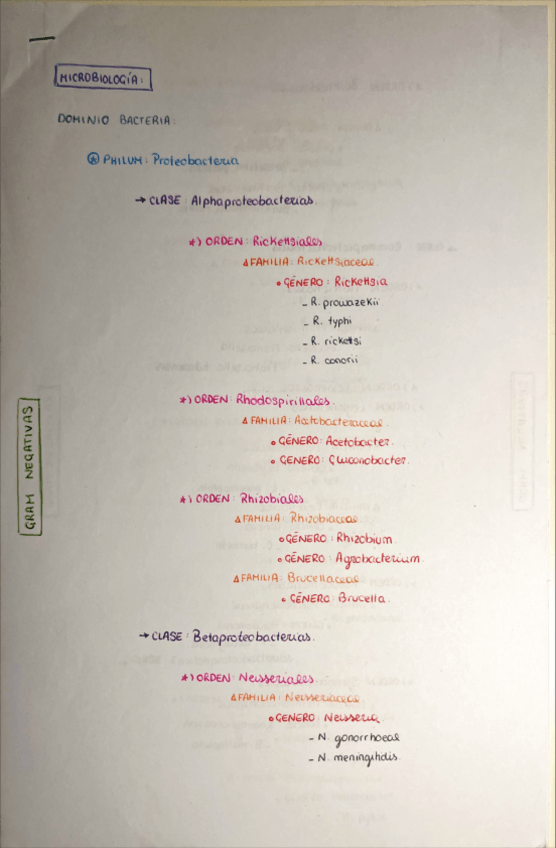 MICROBIOLOGÍA:
DOMINIO BACTERIA:
PHILUM: Proteobacteria
→ CLASE: Alphaproteobacterias.
*) ORDEN: Rickettsiales
FAMILIA: Rickettsiaceae
GÉNERO: Rickettsia
- R. prowazekii
- R. typhi
- R. ricketsi
- R. conorii
*) ORDEN: Rhodospirillales.
FAMILIA: Acetobacteraceae.
GÉNERO: Acetobacter.
GÉNERO: Gluconobacter.
*) ORDEN: Rhizobiales
FAMILIA: Rhizobiaceae
GÉNERO: Rhizobium.
GÉNERO: Agrobacterium.
FAMILIA: Brucellaceae
GÉNERO: Brucella.
→ CLASE: Betaproteobacterias.
*) ORDEN: Neisseriales
FAMILIA: Neisseriaceae
GENERO: Neisseria
- N. gonorrhoeae
- N. meningitidis
GRAM NEGATIVAS